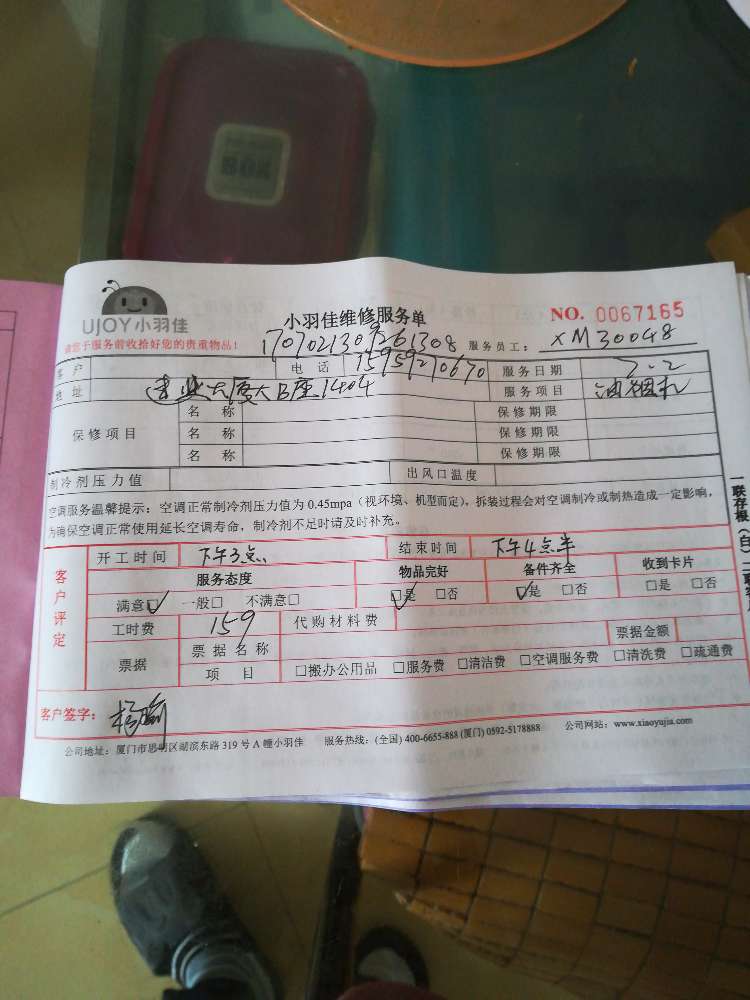 BOX
UJOY小羽佳
小羽佳维修服务单
NO. 0067165
请您于服务前收拾好您的贵重物品!
1707021309261308
服务员工: XM30048
客户 电话 15959270670 服务日期 7.2
地址 大厦大B座1404 服务项目 油烟机
保修项目 名称 保修期限
名称 保修期限
名称 保修期限
制冷剂压力值 出风口温度
空调服务温馨提示:空调正常制冷剂压力值为 0.45mpa(视环境、机型而定),拆装过程会对空调制冷或制热造成一定影响,
为确保空调正常使用延长空调寿命,制冷剂不足时请及时补充。
一联存根(白)二联客
客户评定
开工时间 下午3点 结束时间 下午4点半
服务态度 物品完好 备件齐全 收到卡片
满意☑ 一般□ 不满意□ ☑是 □否 ☑是 □否 □是 □否
工时费 159 代购材料费
票据 票据名称 票据金额
项目 □搬办公用品 □服务费 □清洁费 □空调服务费 □清洗费 □疏通费
客户签字:
公司地址:厦门市思明区湖滨东路 319 号 A 幢小羽佳 服务热线:(全国) 400-6655-888 (厦门) 0592-5178888 公司网站:www.xiaoyujia.com